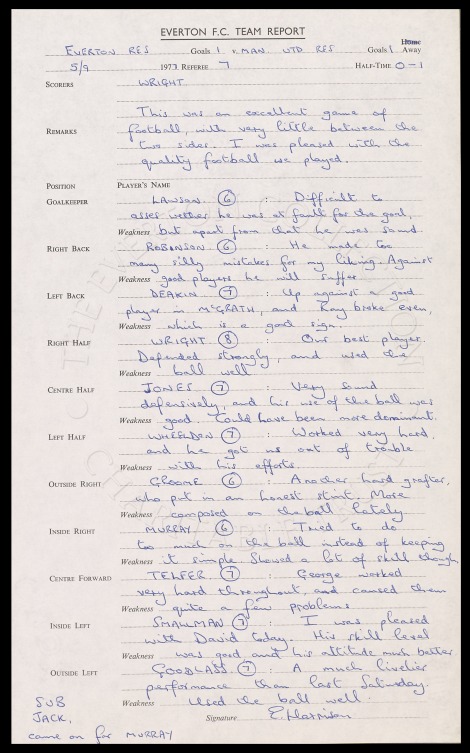 EVERTON F.C. TEAM REPORT
EVERTON RES Goals 1 v. MAN. UTD RES Goals 1 Home Away
5/9 1977 REFEREE 7 HALF-TIME 0-1
SCORERS WRIGHT
This was an excellent game of
REMARKS football, with very little between the
two sides. I was pleased with the
quality football we played.
POSITION PLAYER'S NAME
GOALKEEPER LAWSON 6 : Difficult to
asses wether he was at fault for the goal,
Weakness but apart from that he was sound.
RIGHT BACK ROBINSON 6 : He made too
many silly mistakes for my liking. Against
Weakness good players he will suffer.
LEFT BACK DEAKIN 7 : Up against a good
player in McGRATH, and Ray broke even,
Weakness which is a good sign.
RIGHT HALF WRIGHT 8 : Our best player.
Defended strongly, and used the
Weakness ball well
CENTRE HALF JONES 7 : Very sound
defensively, and his use of the ball was
Weakness good. Could have been more dominant.
LEFT HALF WHEELDON 7 : Worked very hard,
and he got us out of trouble
Weakness with his efforts
OUTSIDE RIGHT GROOME 6 : Another hard grafter,
who put in an honest stint. More
Weakness composed on the ball lately
INSIDE RIGHT MURRAY 6 : Tried to do
too much on the ball instead of keeping
Weakness it simple. Showed a lot of skill though
CENTRE FORWARD TELFER 7 : George worked
very hard throughout, and caused them
Weakness quite a few problems
INSIDE LEFT SMALLMAN 7 : I was pleased
with David today. His skill level
Weakness was good and his attitude much better
OUTSIDE LEFT GOODLASS 7 : A much livelier
performance than last Saturday.
SUB Weakness Used the ball well.
JACK, Signature E. Harrison
came on for MURRAY